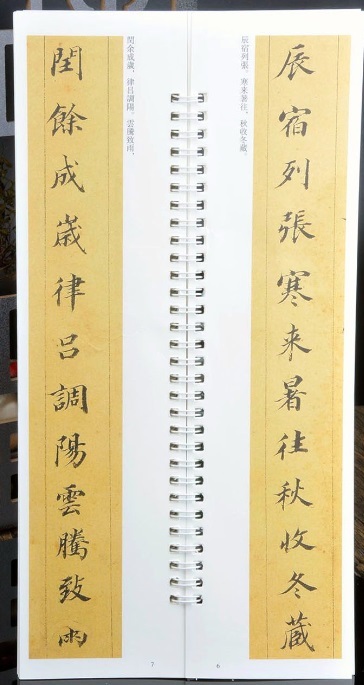 辰宿列張寒来暑往秋收冬蔵
辰宿列張，寒來暑往，秋收冬藏，
6
閏餘成歲律呂調陽雲騰致雨
閏余成歲，律呂調陽。雲騰致雨，
7